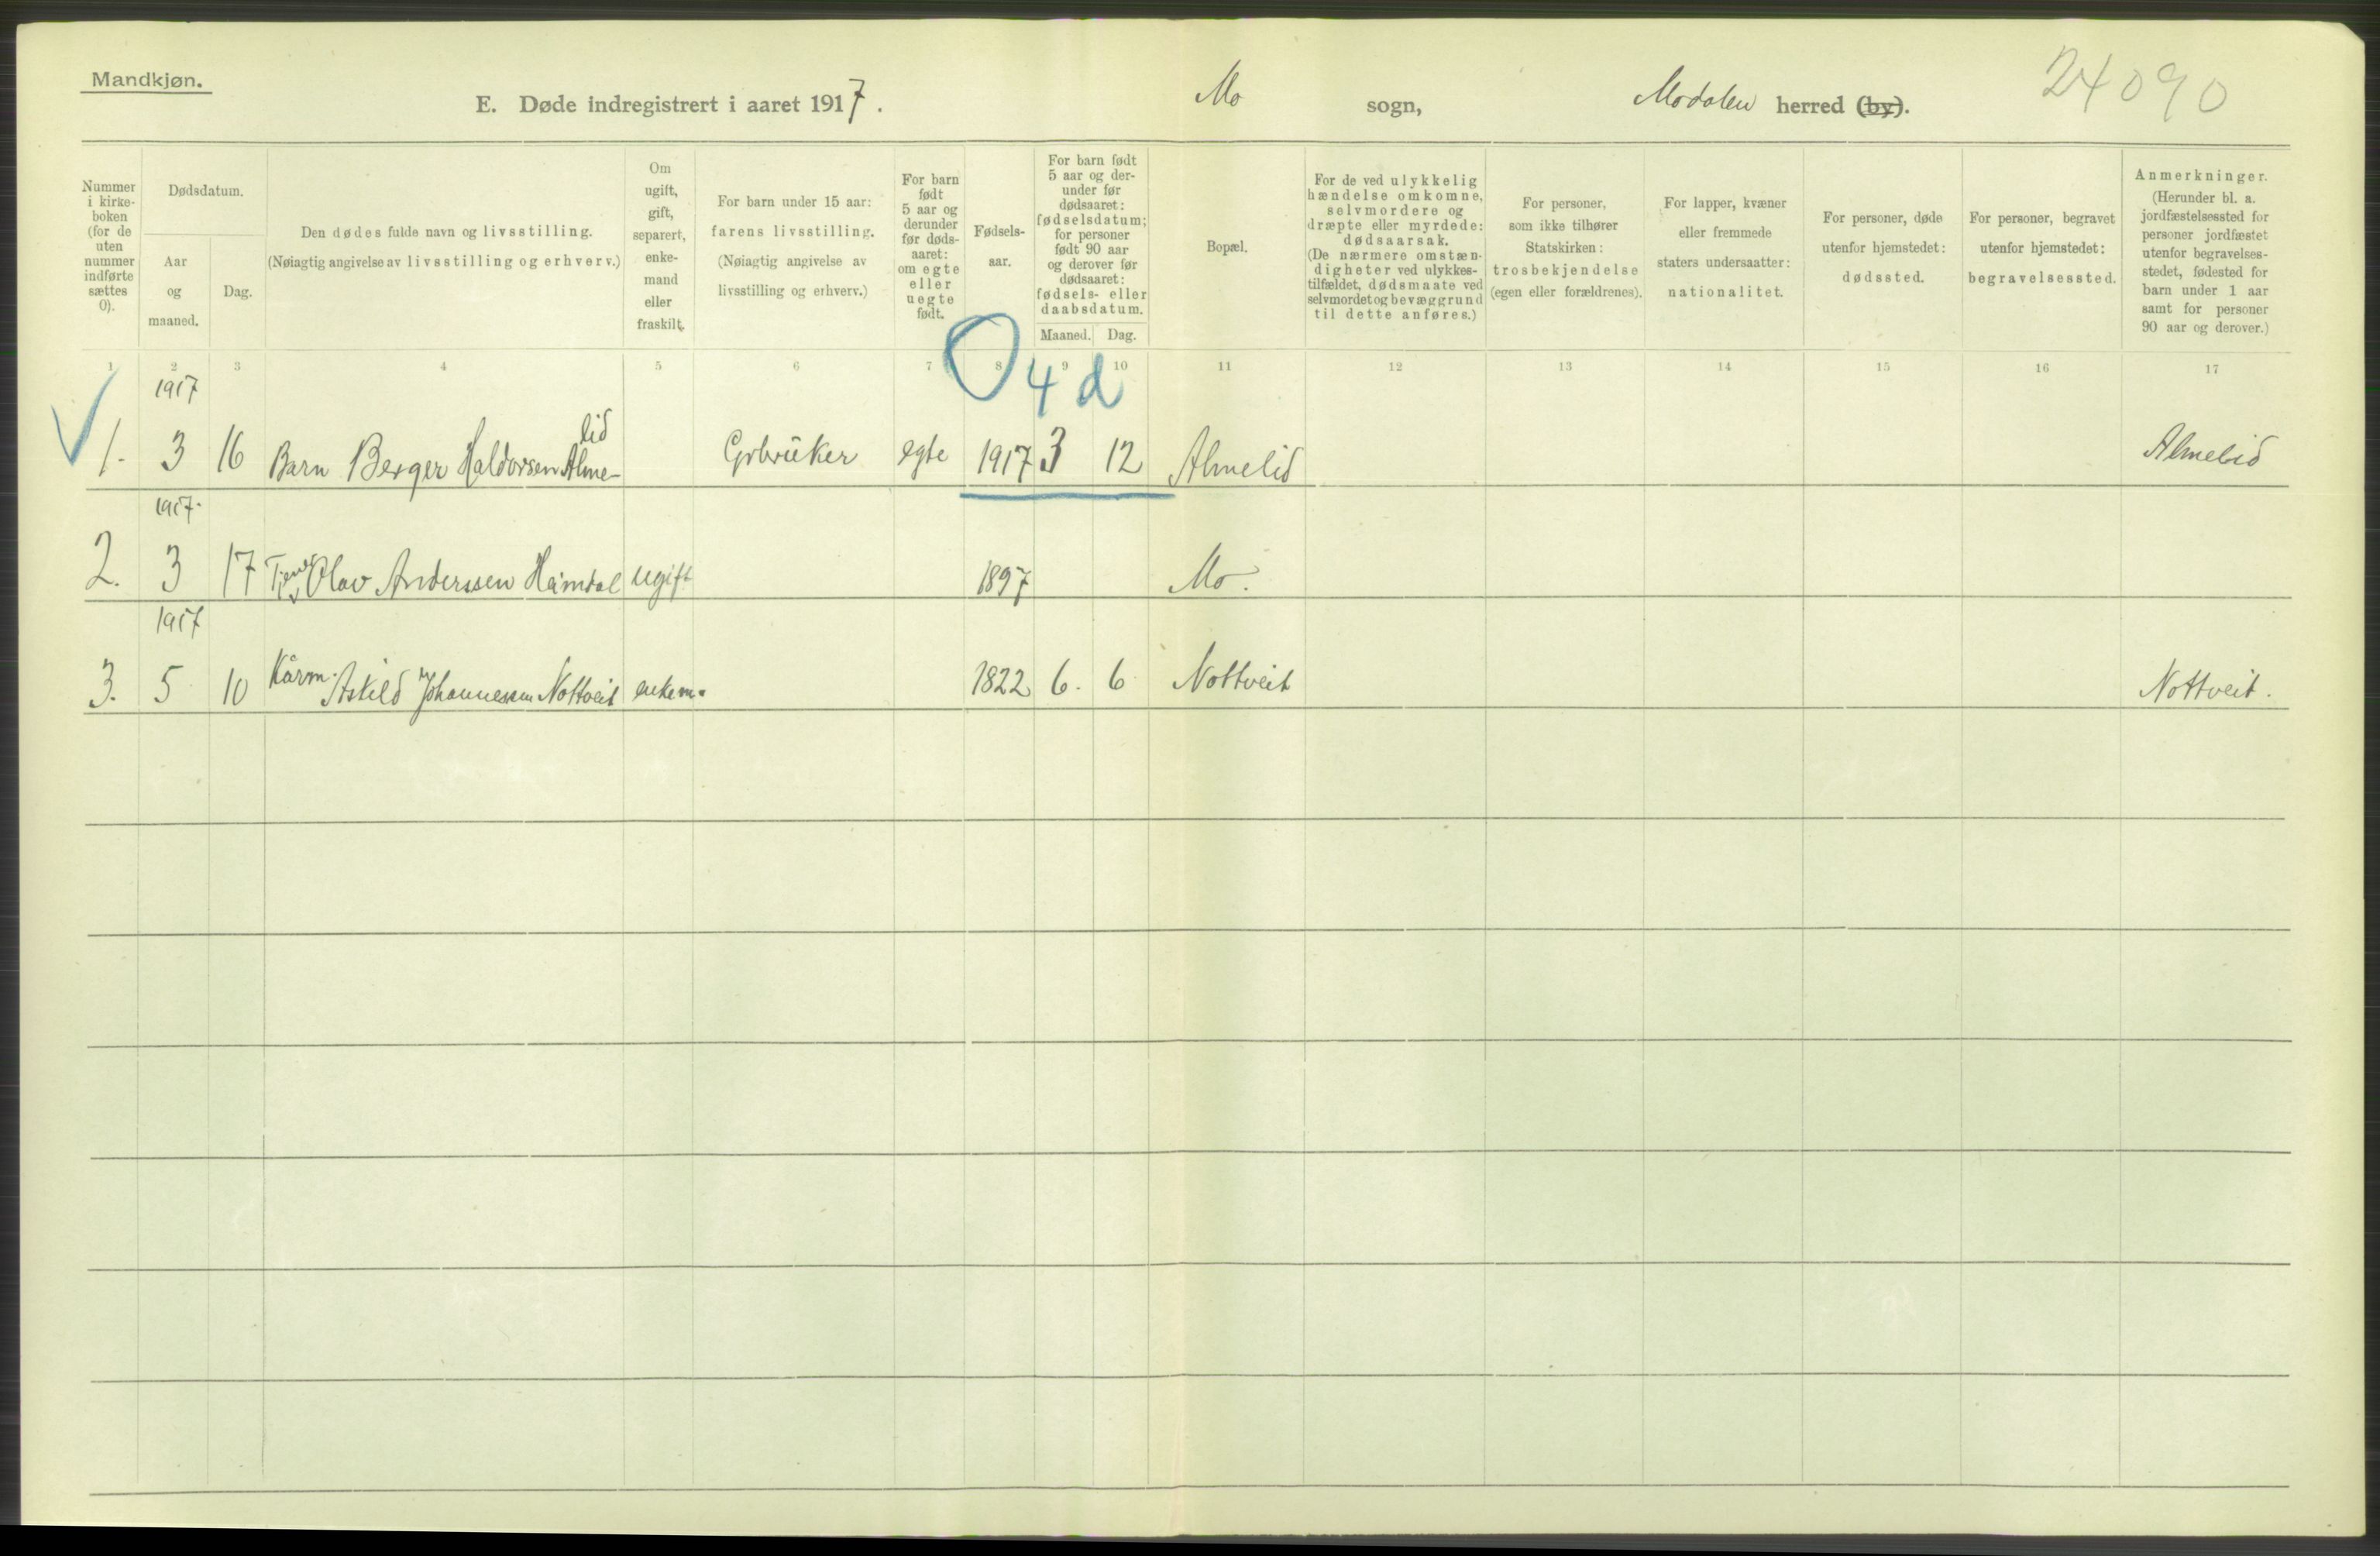 Mandkjøn.
E. Døde indregistrert i aaret 1917. Mo sogn, Modalen herred (by).
24090
Nummer i kirke-boken (for de uten nummer indførte sættes 0).
Dødsdatum.
Aar og maaned.
Dag.
Den dødes fulde navn og livsstilling.
(Nøiagtig angivelse av livsstilling og erhverv.)
Om ugift, gift, separert, enke-mand eller fraskilt.
For barn under 15 aar: farens livsstilling.
(Nøiagtig angivelse av livsstilling og erhverv.)
For barn født 5 aar og derunder før døds-aaret: om egte eller uegte født.
Fødsels-aar.
For barn født 5 aar og der-under før dødsaaret: fødselsdatum; for personer født 90 aar og derover før dødsaaret: fødsels- eller daabsdatum.
Maaned. Dag.
Bopæl.
For de ved ulykkelig hændelse omkomne, selvmordere og dræpte eller myrdede: dødsaarsak.
(De nærmere omstæn-digheter ved ulykkes-tilfældet, dødsmaate ved selvmordet og bevæggrund til dette anføres.)
For personer, som ikke tilhører Statskirken: trosbekjendelse (egen eller forældrenes).
For lapper, kvæner eller fremmede staters undersaatter: nationalitet.
For personer, døde utenfor hjemstedet: dødssted.
For personer, begravet utenfor hjemstedet: begravelsessted.
Anmerkninger.
(Herunder bl. a. jordfæstelsessted for personer jordfæstet utenfor begravelses-stedet, fødested for barn under 1 aar samt for personer 90 aar og derover.)
1 2 3 4 5 6 7 8 9 10 11 12 13 14 15 16 17
0 4 d
1917
1. 3 16 Barn Berger Haldorsen Alme-lid Grbrüker egte 1917 3 12 Almelid Almelid
1917.
2. 3 17 Tjener Olav Anderssen Hamdal ugift 1897 Mo.
1917
3. 5 10 Kårm. Askild Johannessen Nottveit enkem. 1822 6. 6 Nottveit Nottveit.